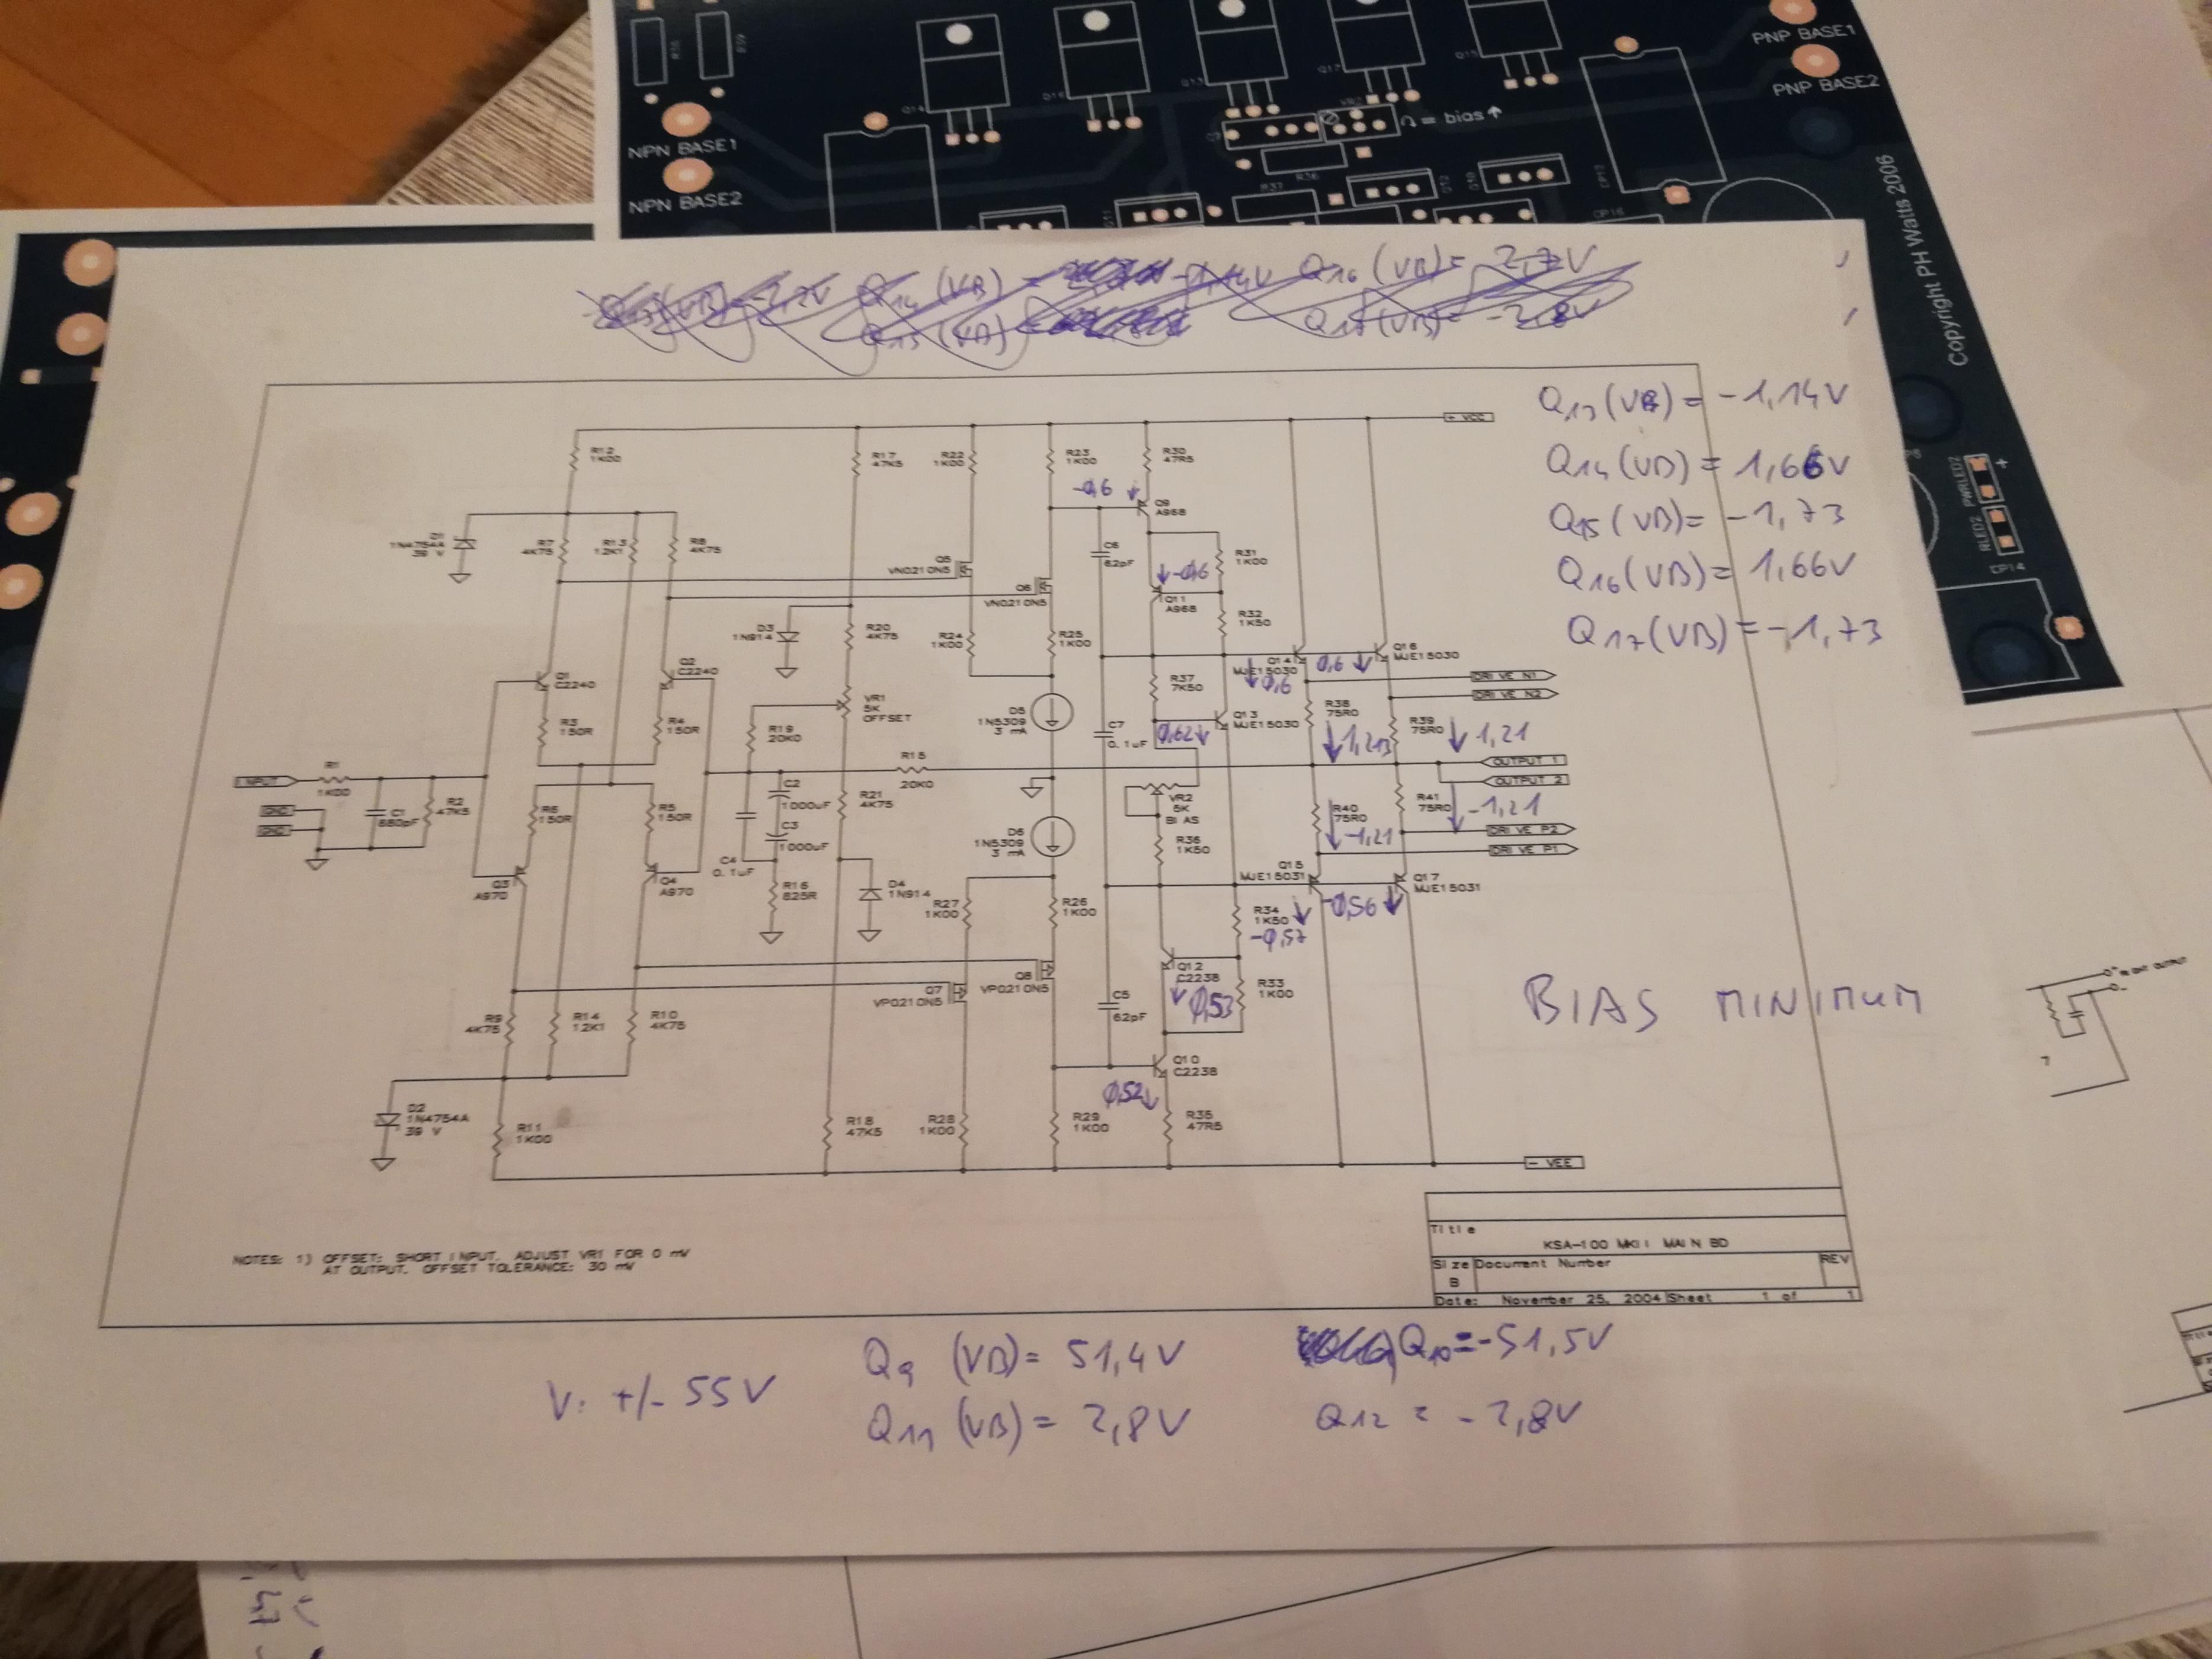 NPN BASE1
NPN BASE2
PNP BASE1
PNP BASE2
= bias
R37
R36
Copyright PH Watts 2006
PWRLED2
+
RLED2
CP14
Q16 (VB) = 2,7V
Q13 (VB) = -1,14V
Q14 (VB) = 1,66V
Q15 (VB) = -1,73
Q16 (VB) = 1,66V
Q17 (VB) = -1,73
+ VCC
R12
1K00
R17
47K5
R22
1K00
R23
1K00
R30
47R5
-0,6
Q9
A968
D1
1N4754A
39 V
R7
4K75
R13
12K1
R8
4K75
Q5
VN0210N5
Q6
VN0210N5
C6
62pF
-0,6
R31
1K00
Q11
A968
D3
1N914
R20
4K75
R24
1K00
R25
1K00
R32
1K50
Q14
MJE15030
0,6
0,6
Q16
MJE15030
DRIVE N1
DRIVE N2
Q1
C2240
Q2
C2240
VR1
5K
OFFSET
D5
1N5309
3 mA
R37
7K50
Q13
MJE15030
R38
75R0
R39
75R0
R3
150R
R4
150R
R19
20K0
C7
0.1uF
0,62
1,213
1,21
INPUT
R1
1K00
R15
20K0
OUTPUT 1
OUTPUT 2
GND
GND
C1
680pF
R2
47K5
R6
150R
R5
150R
C2
1000uF
C3
1000uF
R21
4K75
D6
1N5309
3 mA
VR2
5K
BIAS
R36
1K50
R40
75R0
-1,21
R41
75R0
-1,21
DRIVE P2
DRIVE P1
Q3
A970
Q4
A970
C4
0.1uF
R16
825R
D4
1N914
R27
1K00
R26
1K00
Q15
MJE15031
Q17
MJE15031
R34
1K50
-0,57
-0,56
Q7
VP0210N5
Q8
VP0210N5
Q12
C2238
0,53
R33
1K00
C5
62pF
R9
4K75
R14
12K1
R10
4K75
Q10
C2238
0,52
BIAS MINIMUM
D2
1N4754A
39 V
R11
1K00
R18
47K5
R28
1K00
R29
1K00
R35
47R5
- VEE
NOTES: 1) OFFSET: SHORT INPUT. ADJUST VR1 FOR 0 mV
AT OUTPUT. OFFSET TOLERANCE: 30 mV
Title
KSA-100 MKII MAIN BD
Size Document Number REV
B
Date: November 25, 2004 Sheet 1 of 1
V: +/- 55V
Q9 (VB) = 51,4V
Q10 = -51,5V
Q11 (VB) = 2,8V
Q12 = -2,8V